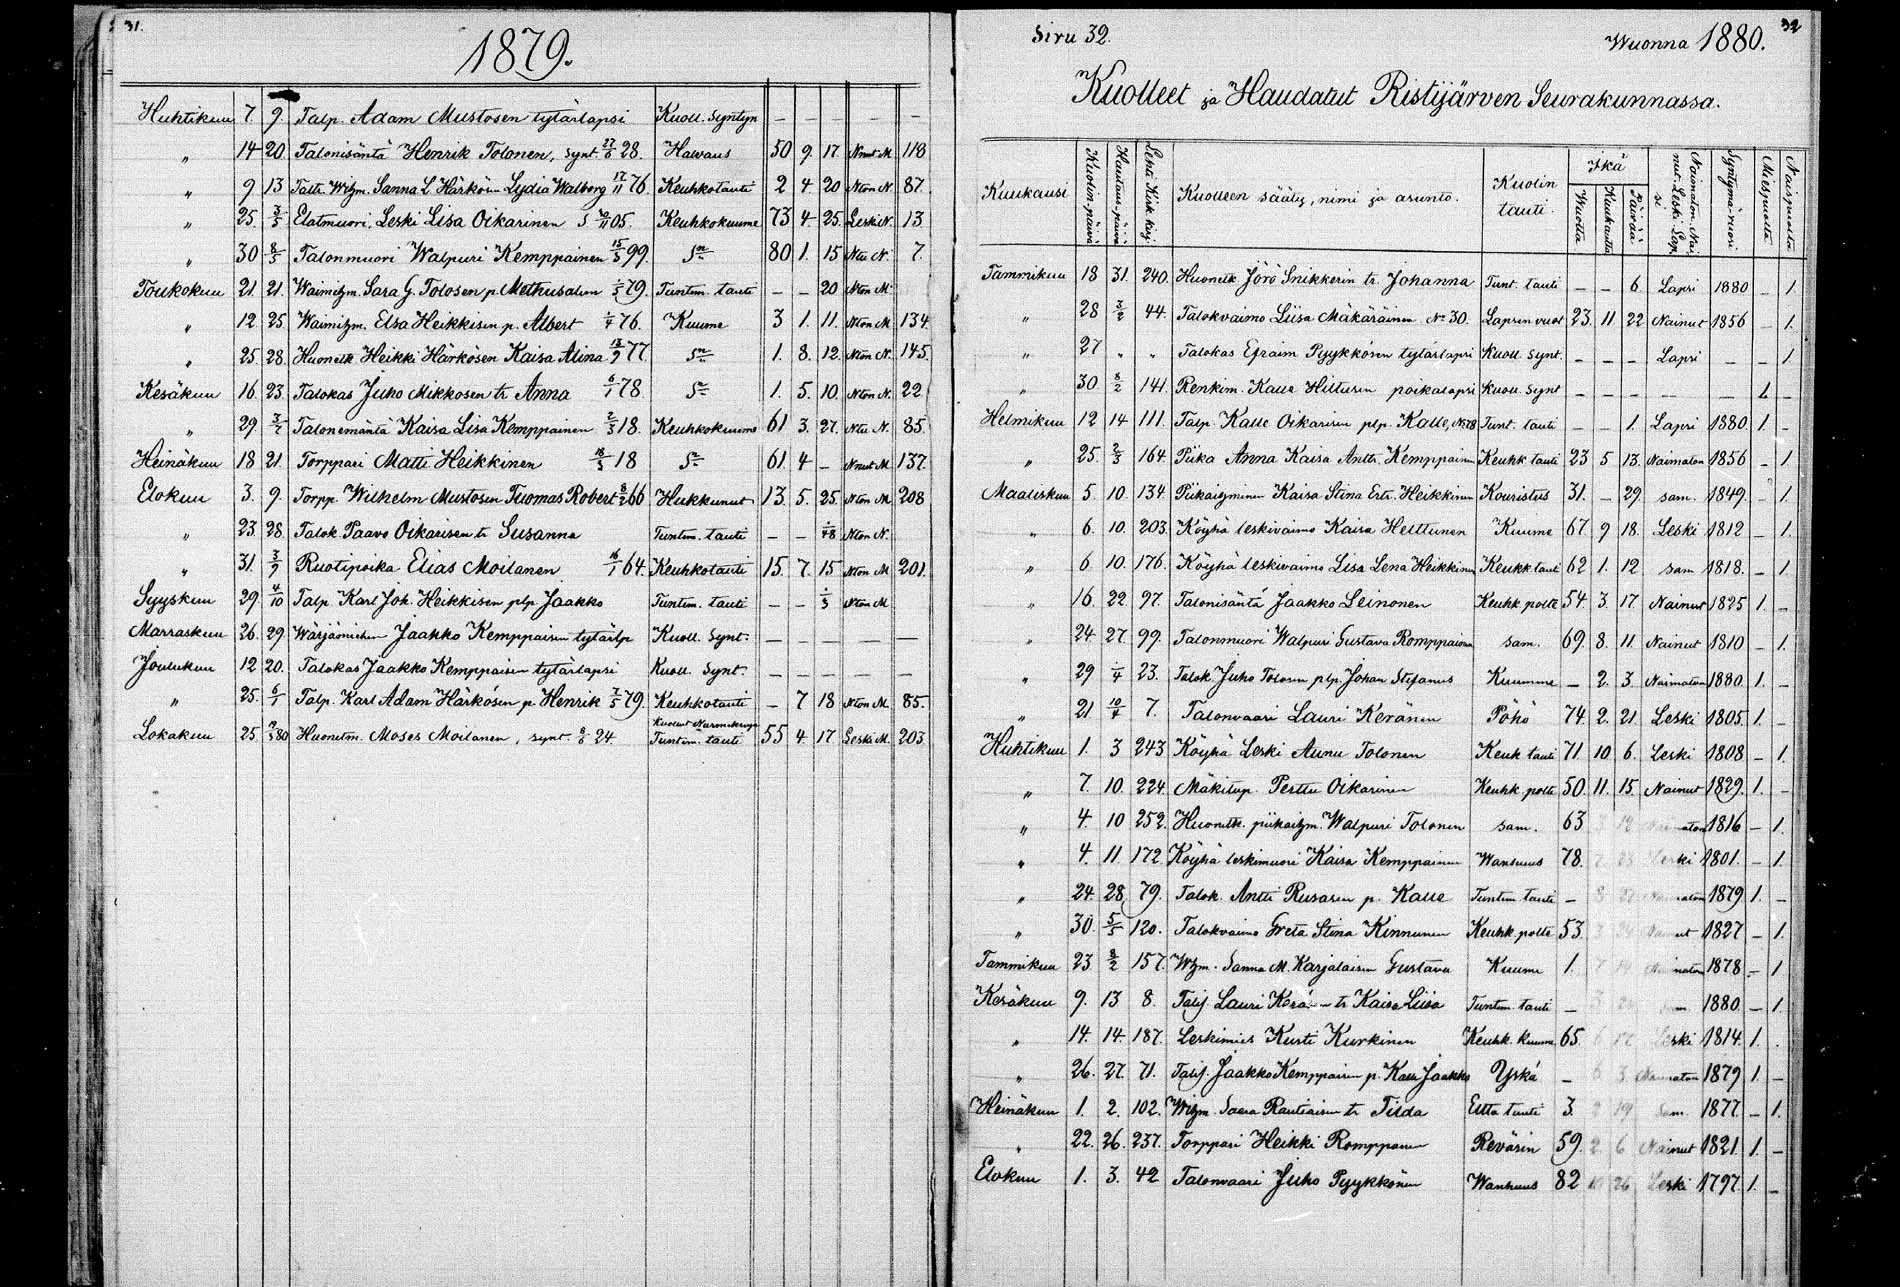 31.
1879.
Huhtikuu 7. 9. Talp. Adam Mustosen tytärlapsi Kuoll. Syntyn — — — — —
„ 14 20 Talonisäntä Henrik Tolonen, Synt. 27/6 28. Halvaus 50 9. 17. Nnut M. 118
„ 9 13 Taltr. Witzm. Sanna L. Härkösen Lydia Walborg 17/11 76. Keuhkotauti 2 4 20 Nton N. 87.
„ 25. 3/5 Elatmuori, Leski Lisa Oikarinen S 30/11 05. Keuhkokuume 73 4 25. Leski N. 13
„ 30 8/5 Talonmuori Walpuri Kemppainen 15/3 99. Sn 80 1. 15 Ntu N. 7.
Toukokuu 21. 21. Waimihm. Sara G. Tolosen p. Methusalem 1/5 79. Tuntem. tauti — — 20 Nton M
„ 12 25. Waimihm. Elsa Heikkisen p. Albert 1/4 76. Kuume 3 1. 11. Nton M. 134.
„ 25 28. Huonetk Heikki Härkösen Kaisa Alina 13/9 77. Sn 1. 8. 12. Nton N. 145.
Kesäkuu 16. 23. Talokas Juho Mikkosen tr Anna 6/1 78. Sn 1. 5. 10. Nton N. 22
„ 29. 3/7 Talonemäntä Kaisa Lisa Kemppainen 2/3 18. Keuhkokuume 61 3. 27. Ntu N. 85.
Heinäkuu 18 21. Torppari Matti Heikkinen 18/3 18 Sn 61. 4 — Nnut M. 137.
Elokuu 3. 9. Torpp. Wilhelm Mustosen Tuomas Robert 8/2 66 Hukkunut 13. 5. 25. Nton M. 208
„ 23. 28. Talok Paavo Oikarisen tr Susanna Tuntem. tauti — — 1/48 Nton N.
„ 31. 3/9 Ruotipoika Elias Moilanen 16/1 64. Keuhkotauti 15. 7. 15 Nton M 201.
Syyskuu 29. 4/10 Talp. Karl Joh. Heikkisen plp Jaakko Tuntem. tauti — — 1/3 Nton M
Marraskuu 26. 29. Jaakko Kemppaisen tytärlp Kuoll. Synt. — — — — —
Joulukuu 12 20. Talokas Jaakko Kemppaisen tytärlapsi Kuoll. Synt. — — — — —
„ 25. 6/1 Talp. Karl Adam Härkösen p. Henrik 7/5 79. Keuhkotauti — 7 18 Nton M. 85.
Kuollut Nurmeksessa
Lokakuu 25. 2/3 80 Huonetm. Moses Moilanen, synt. 8/6 24. Tuntem. tauti 55 4. 17 Leski M. 203
Sivu 32. Wuonna 1880. 32
Kuolleet ja Haudatut Ristijärven Seurakunnassa.
Kuukausi Kuolin-päivä Hautaus-päivä Lehti Kirk. kirj. Kuolleen sääty, nimi ja asunto. Kuolin tauti. Ikä Wuotta Kuukautta Päivää Naimaton. Nainut. Leski. Lapsi Syntymä-vuosi Miespuolta Naispuolta
Tammikuu 18 31. 240. Huonetk Jörö Snikkerin tr Johanna Tunt. tauti — — 6. Lapsi 1880 — 1.
„ 28 3/2 44. Talokvaimo Liisa Mäkäräinen No 30. Lapsen vuot 23. 11 22 Nainut 1856 — 1.
„ 27 „ „ Talokas Efraim Pyykkösen tytärlapsi Kuoll Synt. — — — Lapsi — — 1
„ 30. 8/2 141. Renkim. Kalle Hiltusen poikalapsi Kuoll. Synt — — — — — 1. —
Helmikuu 12 14 111. Talp. Kalle Oikarisen plp. Kalle, Tunt. tauti — — 1. Lapsi 1880. 1. —
„ 25. 2/3 164 Piika Anna Kaisa Anttr. Kemppainen Keuhk tauti 23 5 13. Naimaton 1856 — 1.
Maaliskuu 5. 10. 134. Piikaihminen Kaisa Stina Ertr. Heikkinen Kouristus 31. — 29. sam. 1849. — 1.
„ 6. 10. 203. Köyhä leskivaimo Kaisa Helttunen Kuume 67. 9 18. Leski 1812 — 1.
„ 6 10. 176. Köyhä leskivaimo Lisa Lena Heikkinen Keuhk tauti 62 1. 12 sam 1818. — 1.
„ 16. 22. 97. Talonisäntä Jaakko Leinonen Keuhk. polte 54. 3. 17. Nainut 1825 1. —
„ 24 27. 99. Talonmuori Walpuri Gustava Romppainen sam. 69. 8. 11. Nainut 1810 — 1.
„ 29 1/4 23. Talok Juho Tolosen plp. Johan Stefanus Kuumme — 2. 3. Naimaton 1880. 1. —
„ 21. 10/4 7. Talonvaari Lauri Keränen Pöhö 74. 2. 21. Leski 1805. 1. —
Huhtikuu 1. 3 243 Köyhä Leski Aunu Tolonen Keuk tauti 71. 10. 6. Leski 1808 — 1.
„ 7. 10. 224. Mäkitup. Perttu Oikarinen Keuhk. polte 50. 11. 15. Nainut 1829. 1. —
„ 4. 10 252. Huonetk. piikaihm. Walpuri Tolonen sam. 63 3 12 Naimaton 1816 — 1.
„ 4. 11. 172 Köyhä leskimuori Kaisa Kemppainen Wanhuus 78. Leski 1801. — 1.
„ 24. 28 79. Talok. Antti Rusasen p. Kalle Tuntem tauti — 8 Naimaton 1879 1. —
„ 30. 5/5 120. Talokvaimo Greta Stina Kinnunen Keuhk. polte 53. 3 24 Nainut 1827 — 1.
Tammikuu 23. 8/2 157. Wihm. Sanna M. Karjalaisen Gustava Kuume 1. 7 14 Naimaton 1878 — 1
Kesäkuu 9. 13 8. Talij. Lauri Kerä— tr Kaisa Liisa Tuntem tauti — 3 1880. — 1.
„ 14. 14. 187. Leskimies Kusti Kurkinen Keuhk. kuume 65. 6 17 Leski 1814. 1.
„ 26. 27. 71. Talij. Jaakko Kemppaisen p. Kalle Jaakko Yskä — 6 3. Naimaton 1879 1. —
Heinäkuu 1. 2. 102. Wihm. Saara Rautiaisen tr Tilda tauti 3. 2 19 Sam. 1877. — 1.
„ 22. 26. 237. Torppari Heikki Romppanen Reväsin 59. 2 6 Nainut 1821. 1. —
Elokuu 1. 3. 42 Talonvaari Juho Pyykkönen Wanhuus 82 10 26 Leski 1797. 1. —